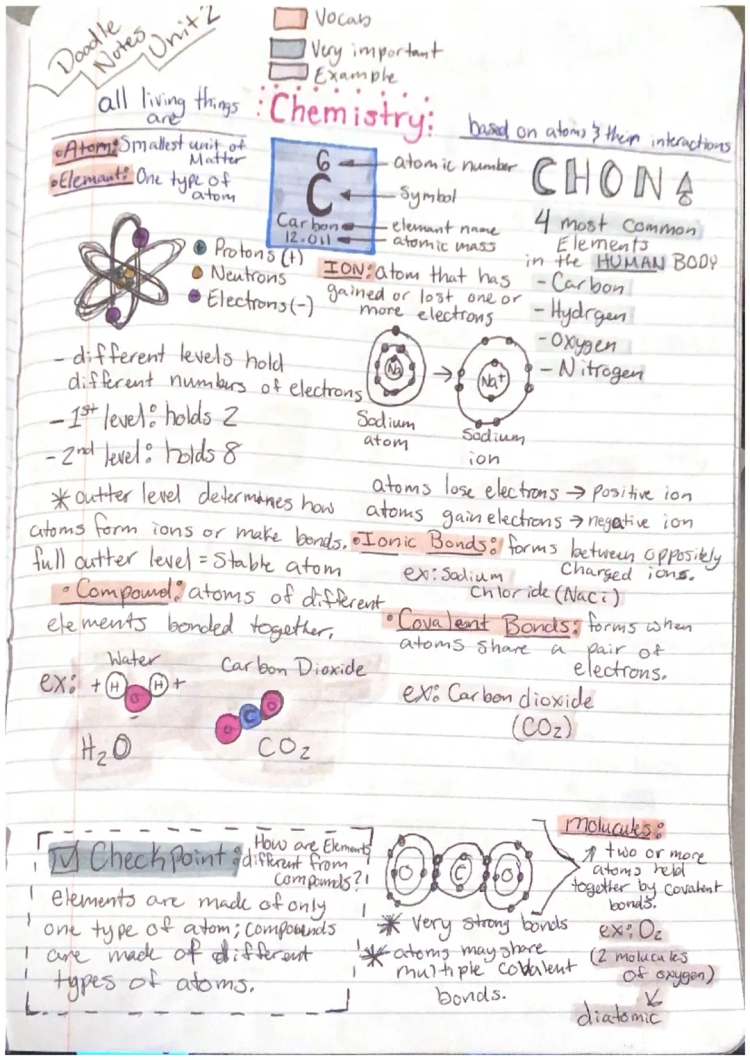 Doodle
Notes
Unit 2
Vocab
Very important
Example
all living things
are
Chemistry:
based on atoms & their interactions
• Atom: Smallest unit of
Matter
• Elemant: One type of
atom
6
C
Carbon
12.011
atomic number
Symbol
elemant name
atomic mass
CHON
4 most common
Elements
in the HUMAN BODY
- Carbon
- Hydrgen
- Oxygen
- Nitrogen
Protons (+)
Neutrons
Electrons (-)
ION: atom that has
gained or lost one or
more electrons
- different levels hold
different numbers of electrons
- 1st level: holds 2
- 2nd level: holds 8
Na
Na+
Sodium
atom
Sodium
ion
* outter level determines how
atoms form ions or make bonds.
full outter level = Stable atom
atoms lose electrons → positive ion
atoms gain electrons → negative ion
• Ionic Bonds: forms between oppositely
charged ions.
ex: Sodium
Chloride (NaCi)
• Compound: atoms of different
elements bonded together.
• Covalent Bonds: forms when
atoms share a pair of
electrons.
ex: Carbon dioxide
(CO2)
ex:
Water
+ H H +
O
H2O
Carbon Dioxide
O C O
CO2
Checkpoint:
How are Elements
different from
compounds?
elements are made of only
one type of atom; compounds
are made of different
types of atoms.
O C O
* very strong bonds
* atoms may share
multiple covalent
bonds.
molucules:
two or more
atoms held
together by covalent
bonds.
ex: O2
(2 molucules
of oxygen)
diatomic